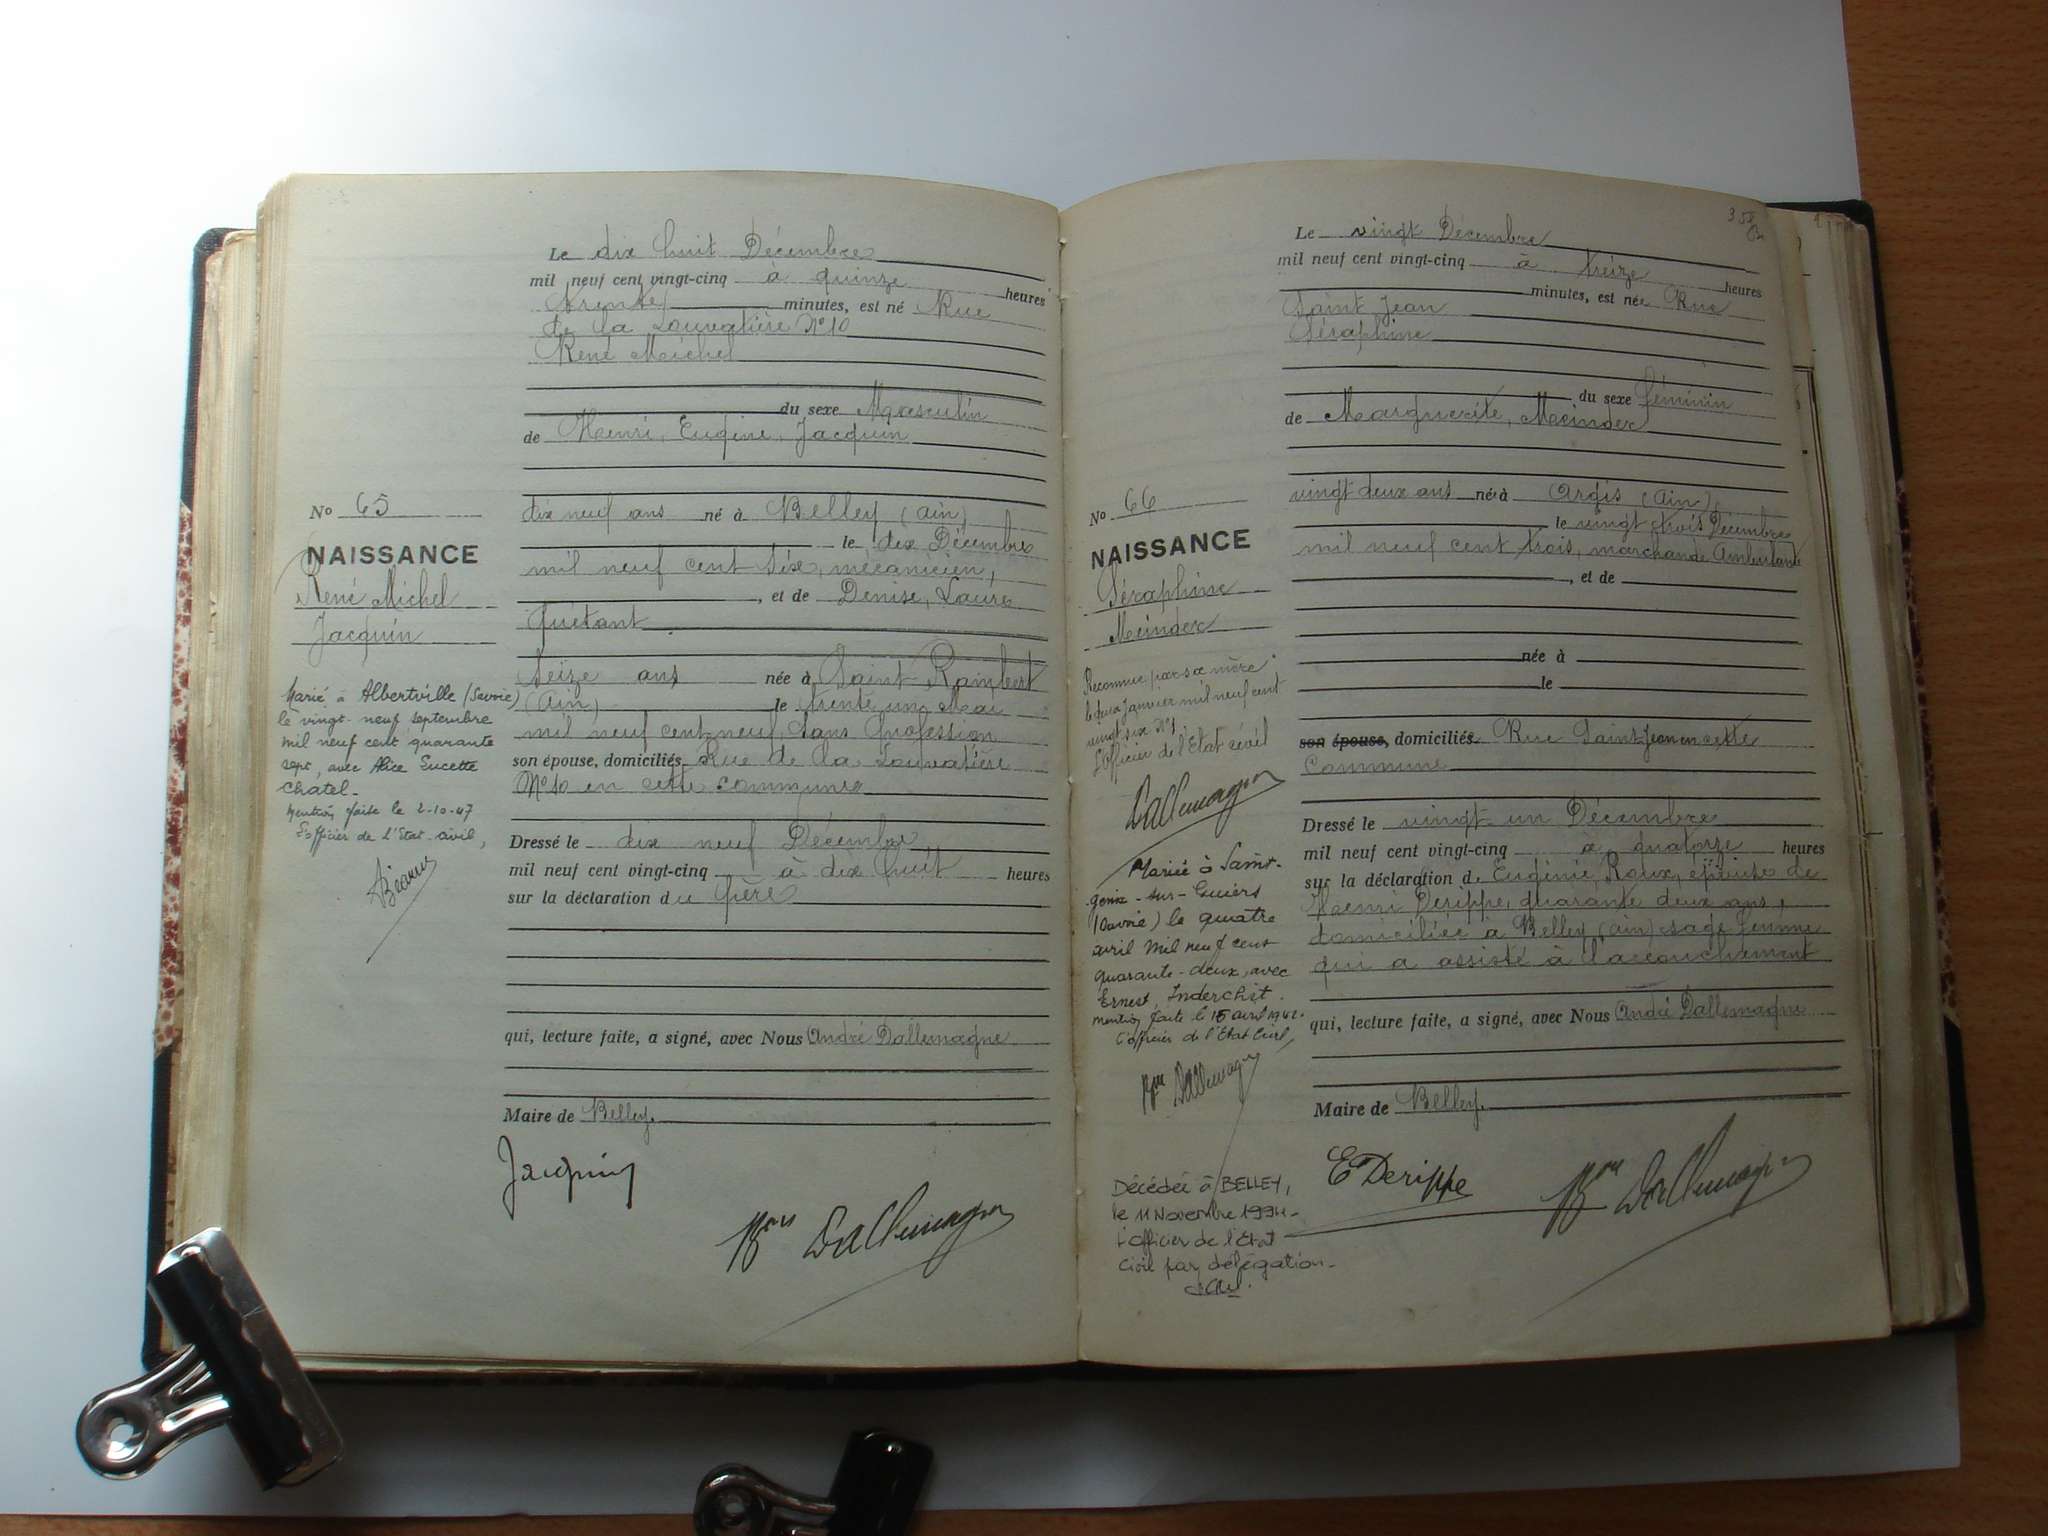 Le dix huit Décembre
mil neuf cent vingt-cinq à quinze heures
trente minutes, est né Rue
de la Louvatière N° 10
René Michel
du sexe Masculin
de Henri, Eugène, Jacquin
dix neuf ans né à Belley (Ain)
le dix Décembre
mil neuf cent six, mécanicien,
, et de Denise, Laure
Quétant
Seize ans née à Saint-Rambert
(Ain) le trente un Mai
mil neuf cent neuf, sans profession
son épouse, domiciliés Rue de la Louvatière
N° 10 en cette commune
Dressé le dix neuf Décembre
mil neuf cent vingt-cinq à dix huit heures
sur la déclaration du père
qui, lecture faite, a signé, avec Nous André Dallemagne
Maire de Belley.
Jacquin
Dallemagne
No 65
NAISSANCE
René Michel
Jacquin
Marié à Albertville (Savoie)
le vingt-neuf septembre
mil neuf cent quarante
sept, avec Alice Lucette
Chatel-
Mention faite le 2-10-47
L'officier de l'Etat-civil,
358
Le vingt Décembre
mil neuf cent vingt-cinq à treize heures
minutes, est née Rue
Saint Jean
Séraphine
du sexe féminin
de Marguerite, Meinder
vingt deux ans née à Argis (Ain)
le vingt trois Décembre
mil neuf cent trois, marchande Ambulante
, et de
née à
le
son épouse, domiciliés Rue Saint Jean en cette
Commune
Dressé le vingt-un Décembre
mil neuf cent vingt-cinq à quatorze heures
sur la déclaration de Eugénie, Roux, épouse de
Henri Derippe, quarante deux ans,
domiciliée à Belley (Ain) sage femme
qui a assisté à l'accouchement
qui, lecture faite, a signé, avec Nous André Dallemagne
Maire de Belley.
E Derippe
Dallemagne
No 66
NAISSANCE
Séraphine
Meinder
Reconnue par sa mère
le deux Janvier mil neuf cent
vingt six N° 1
L'Officier de l'Etat civil
Dallemagne
Mariée à Saint-
Genix-sur-Guiers
(Savoie) le quatre
avril mil neuf cent
quarante-deux, avec
Ernest Inderchit.
mention faite le 15 avril 1942.
L'officier de l'Etat Civil,
Dallemagne
Décédée à BELLEY,
le 11 Novembre 1994-
L'Officier de l'Etat
Civil par délégation-